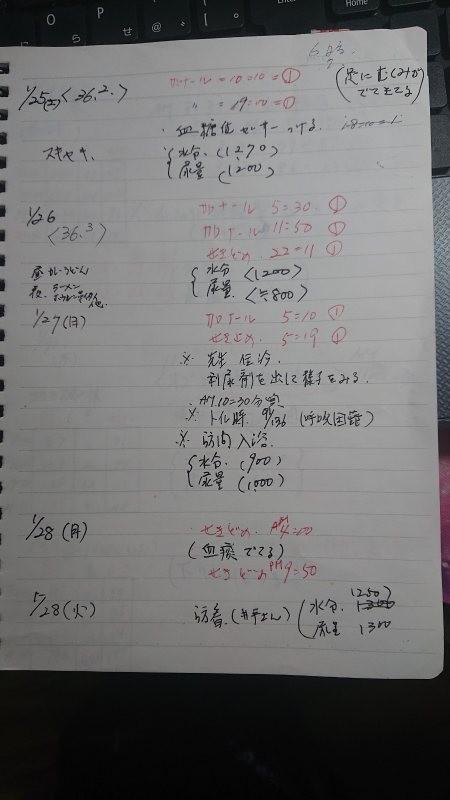 O P [ Enter Home
ら せ @ 「 。
6.23.
1/25(土)<36.2.> カロナール=10=10=①
(足にむくみが
でてきてる)
〃 = 19=10=①
・血糖値センサーつける.
スキヤキ. 水分.(1270)
尿量(1200)
1/26 カロナール 5=30. ①
<36.3> カロナール 11=50 ①
せきどめ. 22=11 ①
昼 カレーうどん 水分<1200>
夜. ラーメン 尿量.<≒800>
他.
1/27(月) カロナール 5=10 ①
せき止め 5=19 ①
※ 先生往診.
利尿剤を出して様子をみる.
・AM.10=30分頃
※ トイレ時. (呼吸困難)
※ 訪問入浴
水分.(900)
尿量(1000)
1/28(月) ・せきどめ AM4=00
(血痰でてる)
せきどめ PM9=50
1/28(火) 訪看. 水分. 1250
尿量 1300